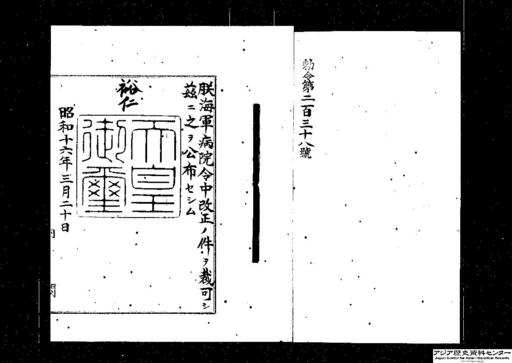 勅令第二百三十八號
朕海軍病院令中改正ノ件ヲ裁可シ
茲ニ之ヲ公布セシム
裕仁
天皇
御璽
昭和十六年三月二十日
アジア歴史資料センター
Japan Center for Asian Historical Records